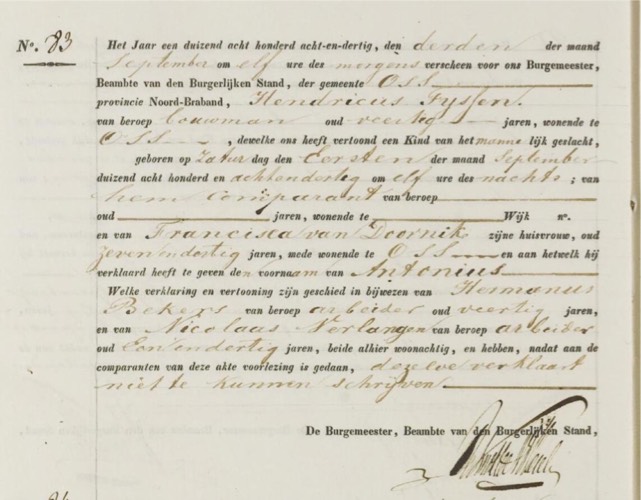 N°. 83
Het Jaar een duizend acht honderd acht-en-dertig, den derden der maand
September om elf ure des morgens verscheen voor ons Burgemeester,
Beambte van den Burgerlijken Stand, der gemeente Oss
provincie Noord-Braband, Hendricus Fyssen.
van beroep bouwman oud veertig jaren, wonende te
Oss, dewelke ons heeft vertoond een Kind van het manne lijk geslacht,
geboren op Zatur dag den Eersten der maand September
duizend acht honderd en achtendertig om elf ure des nachts; van
hem Comparant van beroep
oud jaren, wonende te Wijk n°.
en van Francisca van Doornik zijne huisvrouw, oud
zevenendertig jaren, mede wonende te Oss en aan hetwelk hij
verklaard heeft te geven den voornaam van Antonius
Welke verklaring en vertooning zijn geschied in bijwezen van Hermanus
Bekers van beroep arbeider oud veertig jaren,
en van Nicolaas Verlangen van beroep arbeider
oud Eenendertig jaren, beide alhier woonachtig, en hebben, nadat aan de
comparanten van deze akte voorlezing is gedaan, dezelve verklaart
niet te kunnen schrijven
De Burgemeester, Beambte van den Burgerlijken Stand,